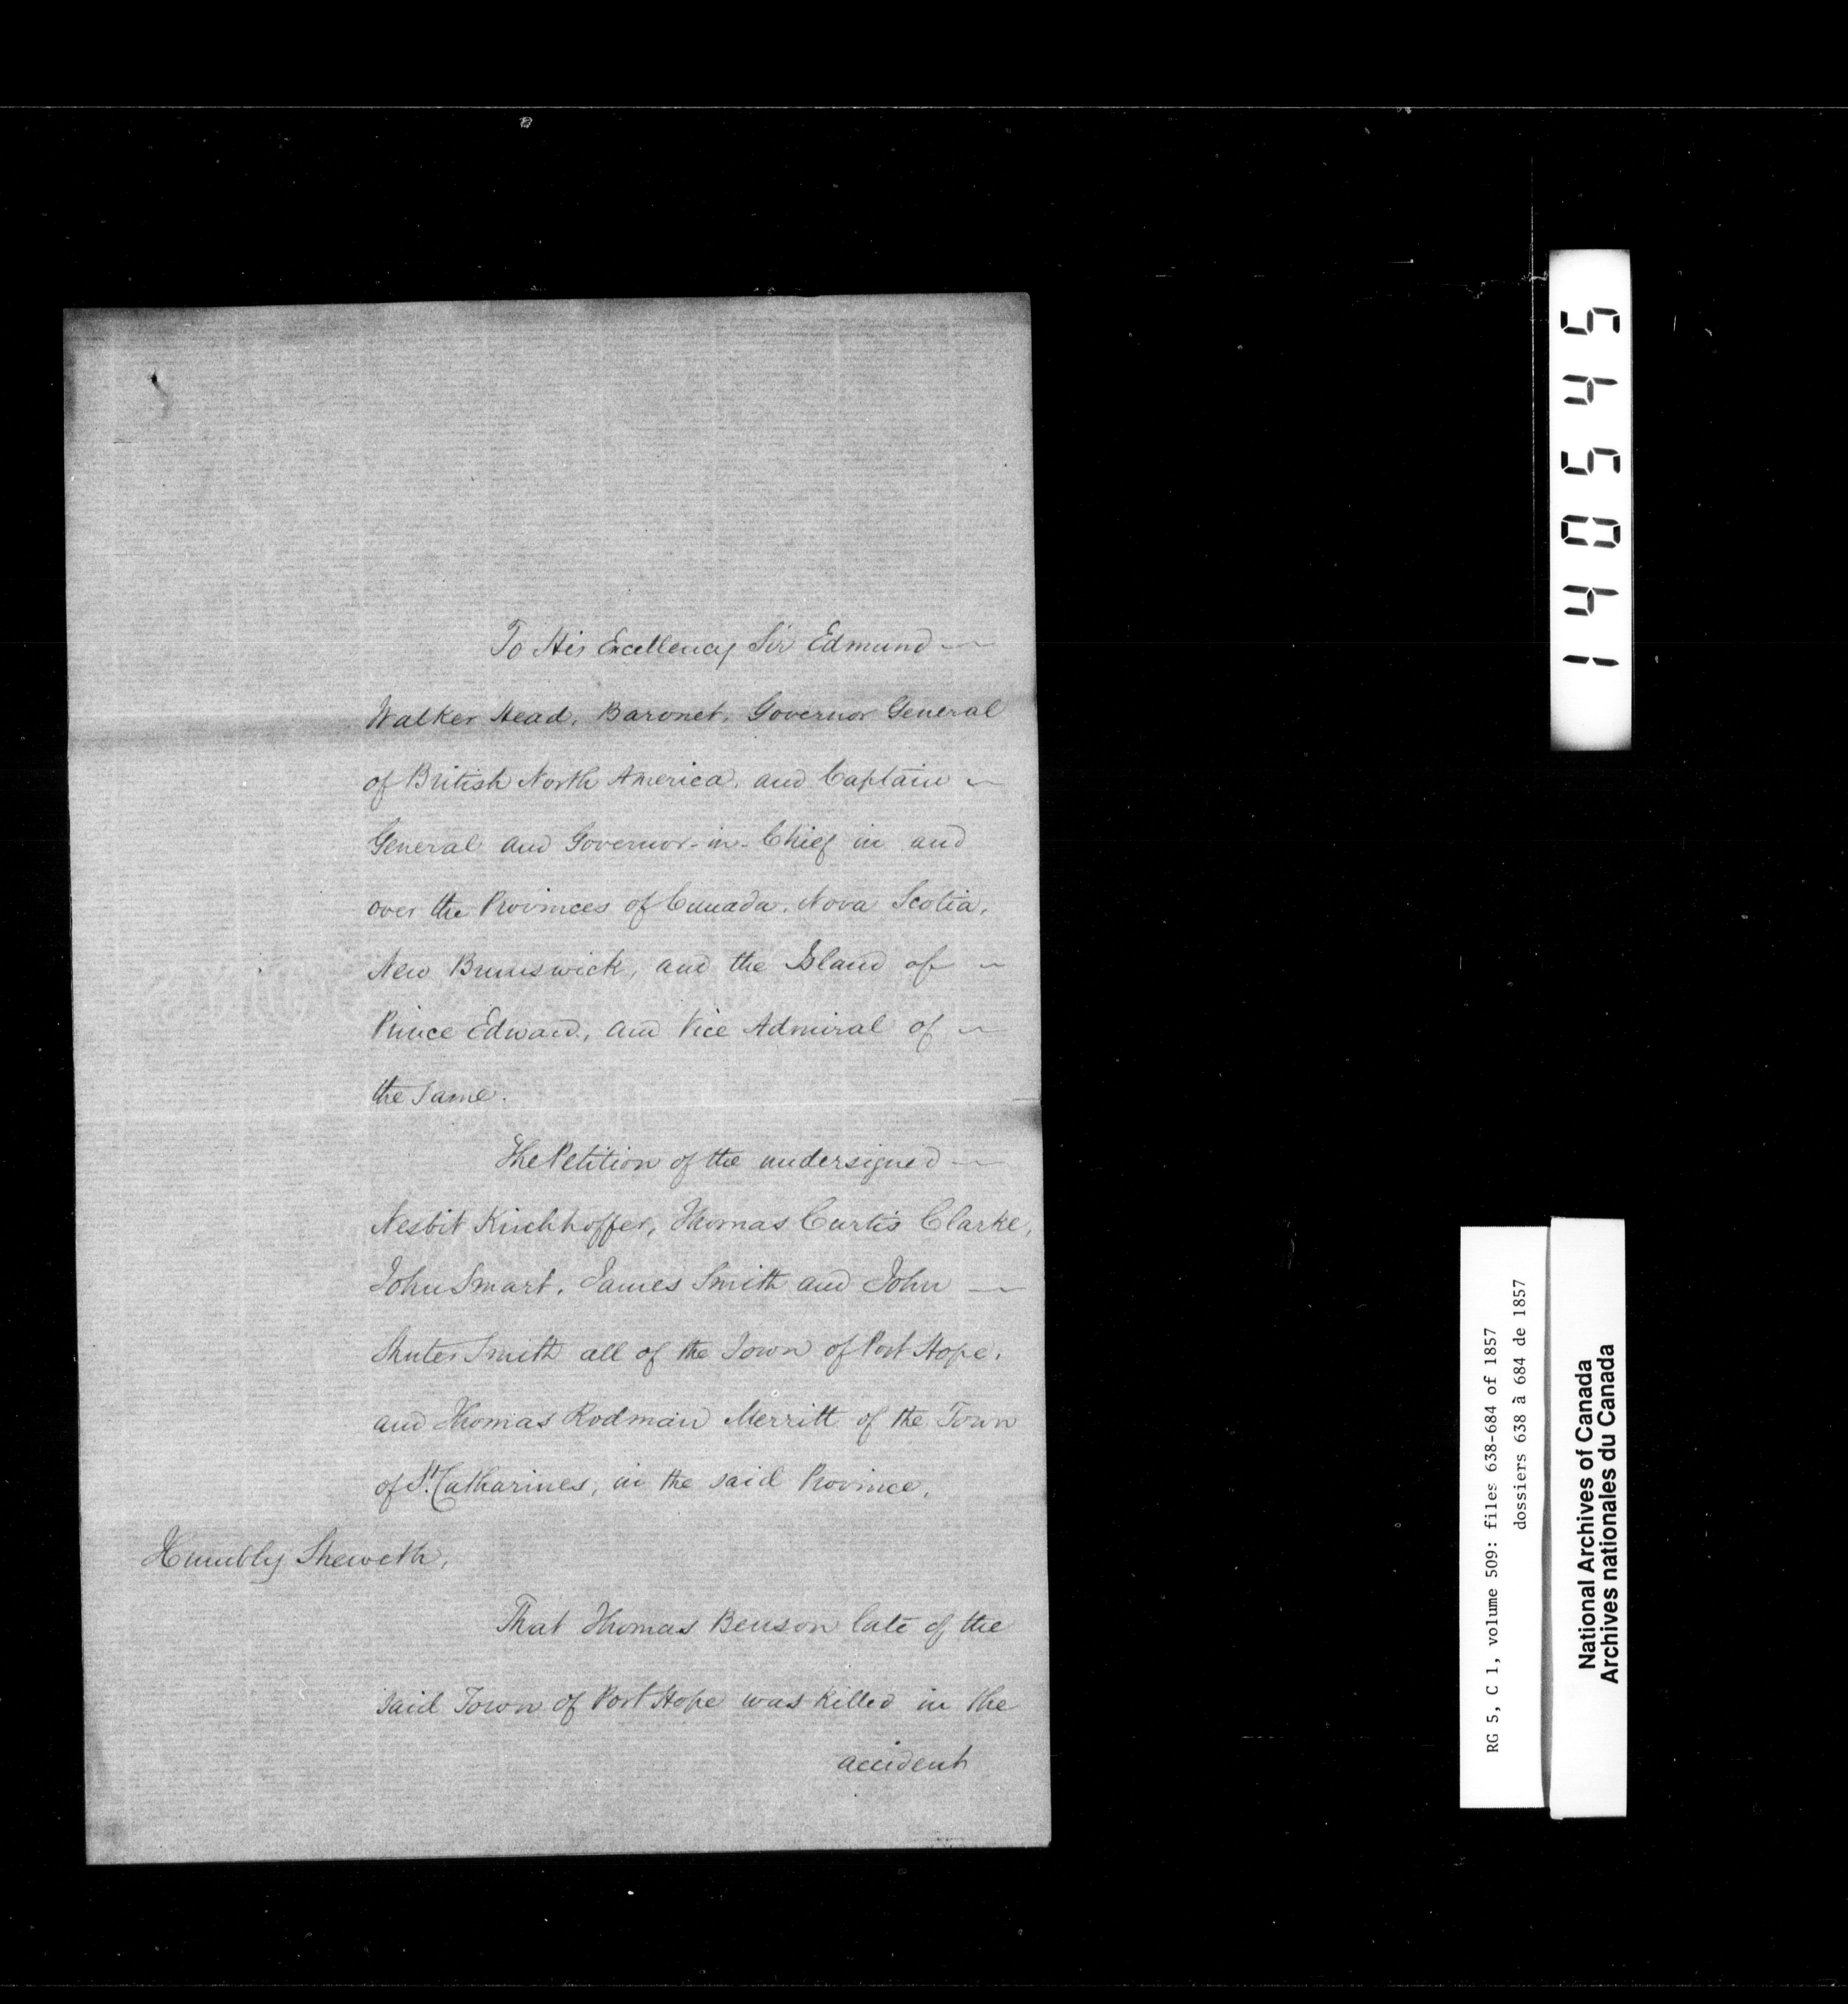 To His Excellency Sir Edmund —
Walker Head, Baronet, Governor General
of British North America, and Captain ~
General and Governor-in-Chief in and
over the Provinces of Canada, Nova Scotia,
New Brunswick, and the Island of ~
Prince Edward, and Vice Admiral of ~
the same.
The Petition of the undersigned —
Nesbit Kirchhoffer, Thomas Curtis Clarke,
John Smart, James Smith and John —
Shuter Smith all of the Town of Port Hope,
and Thomas Rodman Merritt of the Town
of St. Catharines, in the said Province,
Humbly Sheweth,
That Thomas Benson late of the
said Town of Port Hope was killed in the
accident
140545
RG 5, C 1, volume 509: files 638-684 of 1857
dossiers 638 à 684 de 1857
National Archives of Canada
Archives nationales du Canada